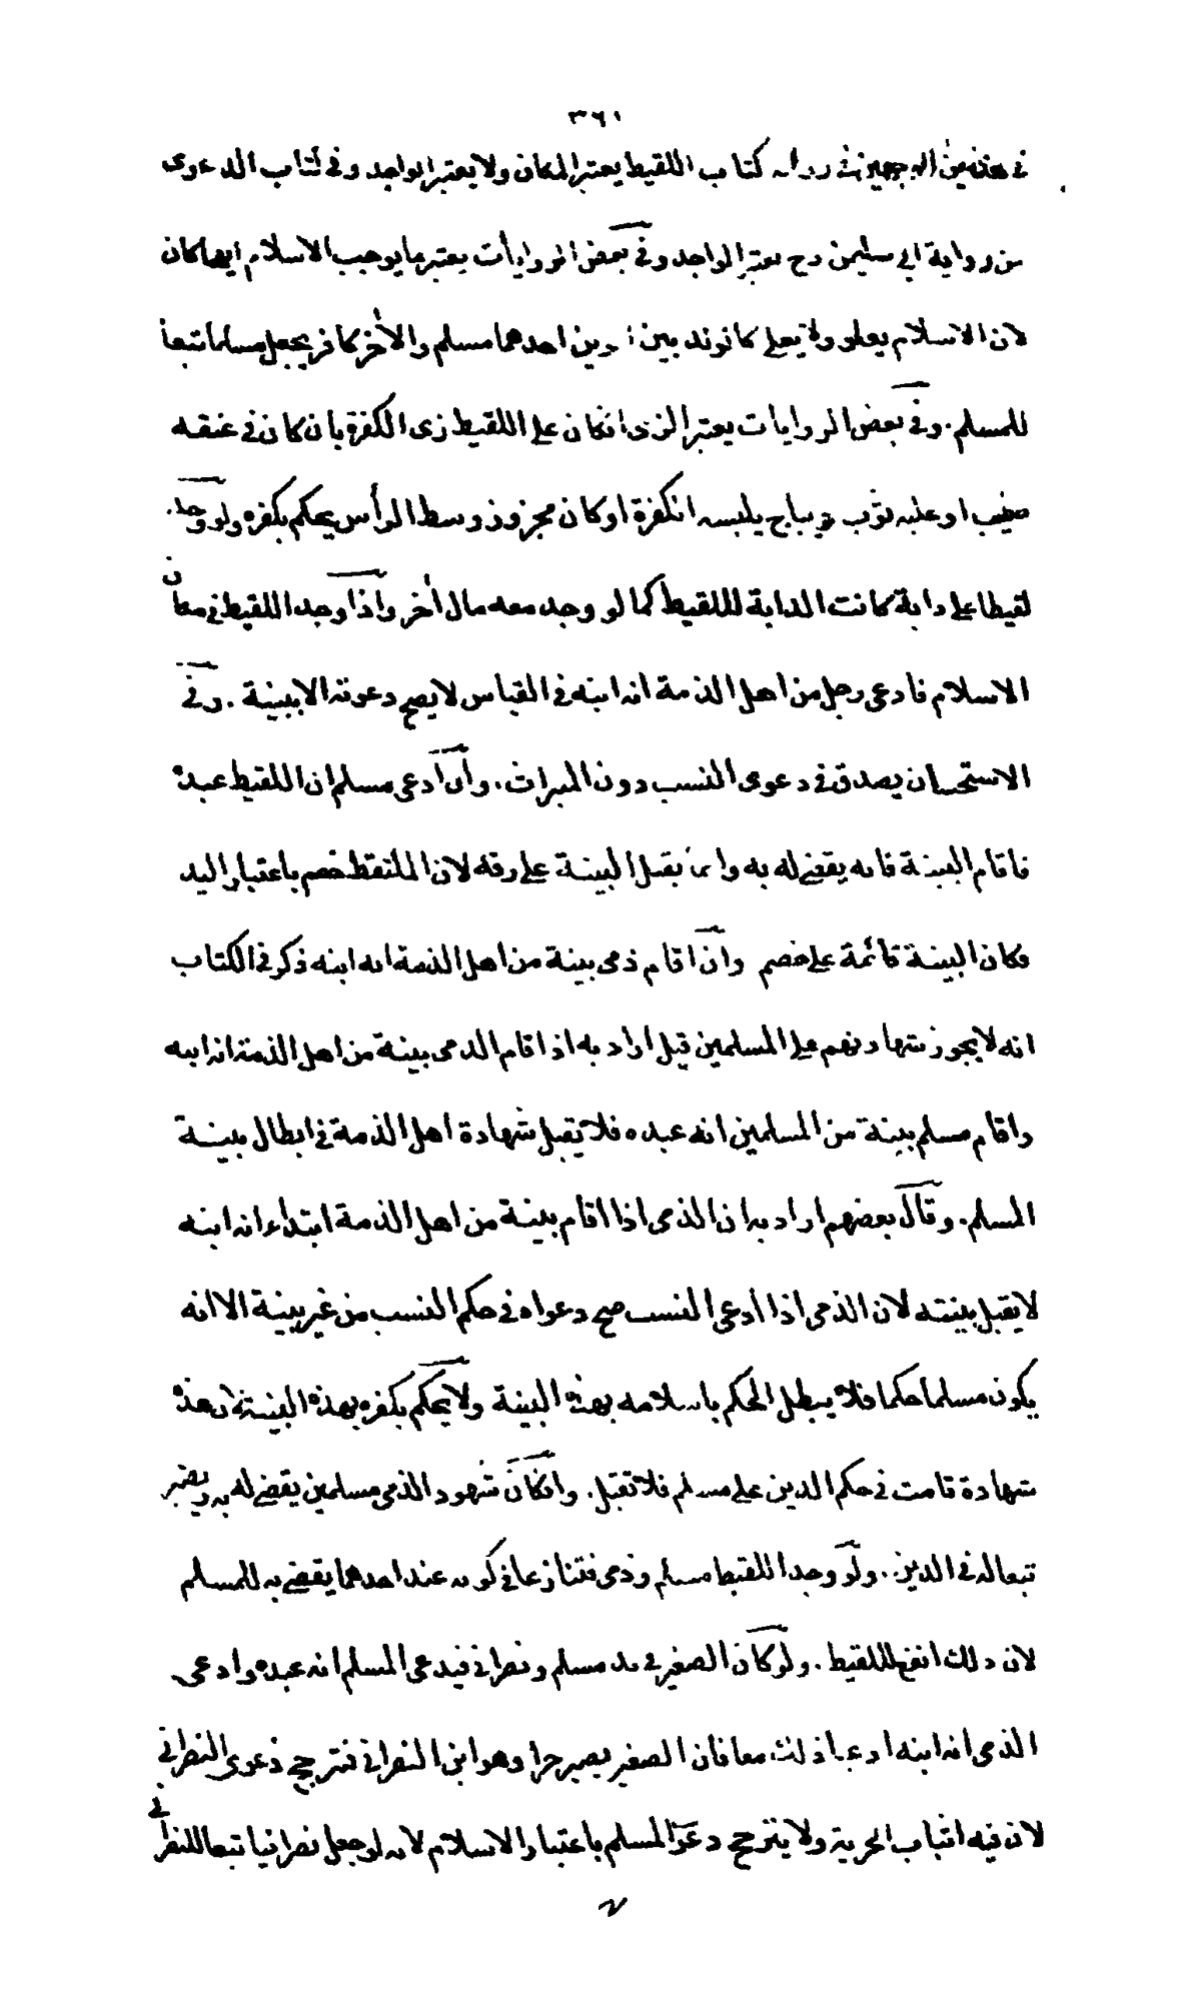 ٣٦١
في هذين الوجهين في رواية كتاب اللقيط يعتبر المكان ولا يعتبر الواجد وفي كتاب الدعوى
من رواية ابي سليمن رح يعتبر الواجد وفي بعض الروايات يعتبر ما يوجب الاسلام ايهما كان
لان الاسلام يعلو ولا يعلى كالولد بين ابوين احدهما مسلم والآخر كافر يجعل مسلما تبعا
للمسلم. وفي بعض الروايات يعتبر الزي انكان على اللقيط زى الكفرة بان كان في عنقه
صليب او عليه ثوب ديباج يلبسه الكفرة او كان مجزوز وسط الرأس يحكم بكفره ولو وجد
لقيطا على دابة كانت الدابة لللقيط كما لو وجد معه مال آخر واذا وجد اللقيط في مكان
الاسلام فادعى رجل من اهل الذمة انه ابنه في القياس لا يصح دعوته الا ببينة. وفي
الاستحسان يصدق في دعوى النسب دون الميراث. وان ادعى مسلم ان اللقيط عبده
فاقام البينة فانه يقضى له به وانما يقبل البينة على رقه لان الملتقط خصم باعتبار اليد
فكان البينة قائمة على خصم وان اقام ذمى بينة من اهل الذمة انه ابنه ذكر في الكتاب
انه لا يجوز شهادتهم على المسلمين قيل اراد به اذا اقام الذمى بينة من اهل الذمة انه ابنه
واقام مسلم بينة من المسلمين انه عبده فلا يقبل شهادة اهل الذمة في ابطال بينة
المسلم. وقال بعضهم اراد به ان الذمى اذا اقام بينة من اهل الذمة ابتداء انه ابنه
لا يقبل بينته لان الذمى اذا ادعى النسب صح دعواه في حكم النسب من غير بينة الا انه
يكون مسلما حكما فلا يبطل الحكم باسلامه بهذه البينة ولا يحكم بكفره بهذه البينة لان هذه
شهادة قامت في حكم الدين على مسلم فلا تقبل. وانكان شهود الذمى مسلمين يقضى له به ويصير
تبعا له في الدين. ولو وجد اللقيط مسلم وذمى فتنازعا في كونه عند احدهما يقضى به للمسلم
لان ذلك انفع لللقيط. ولو كان الصغير في يد مسلم ونصراني فيدعى المسلم انه عبده وادعى
الذمى انه ابنه ادعيا ذلك معا فان الصغير يصير حرا وهو ابن النصراني فترجح دعوى النصراني
لان فيه اثبات الحرية ولا يترجح دعوى المسلم باعتبار الاسلام لانه لو جعل نصرانيا تبعا للنصراني